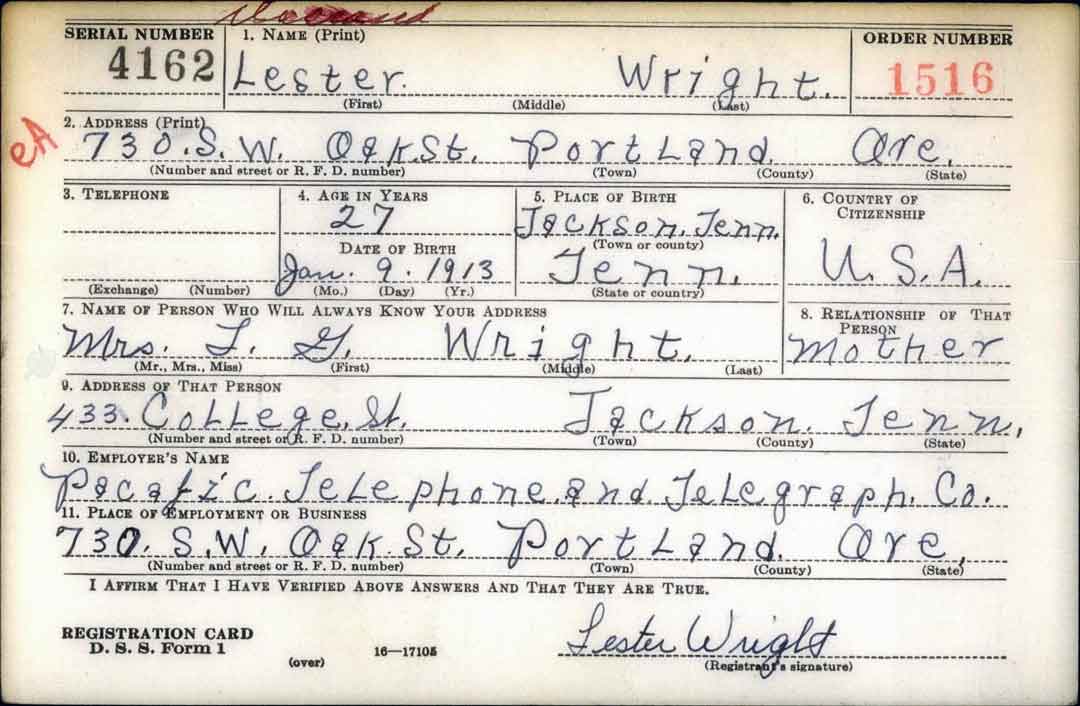 SERIAL NUMBER 1. NAME (Print) ORDER NUMBER
4162 Lester. Wright. 1516
(First) (Middle) (Last)
2. ADDRESS (Print)
730. S. W. Oak. St. Portland. Ore.
(Number and street or R. F. D. number) (Town) (County) (State)
3. TELEPHONE 4. AGE IN YEARS 5. PLACE OF BIRTH 6. COUNTRY OF CITIZENSHIP
27 Jackson. Tenn.
DATE OF BIRTH (Town or county)
Jan. 9. 1913 Tenn. U. S. A.
(Exchange) (Number) (Mo.) (Day) (Yr.) (State or country)
7. NAME OF PERSON WHO WILL ALWAYS KNOW YOUR ADDRESS 8. RELATIONSHIP OF THAT PERSON
Mrs. T. G. Wright. Mother
(Mr., Mrs., Miss) (First) (Middle) (Last)
9. ADDRESS OF THAT PERSON
433. College. St. Jackson. Tenn.
(Number and street or R. F. D. number) (Town) (County) (State)
10. EMPLOYER'S NAME
Pacafic. Telephone. and Telegraph. Co.
11. PLACE OF EMPLOYMENT OR BUSINESS
730. S. W. Oak. St. Portland. Ore.
(Number and street or R. F. D. number) (Town) (County) (State)
I AFFIRM THAT I HAVE VERIFIED ABOVE ANSWERS AND THAT THEY ARE TRUE.
REGISTRATION CARD
D. S. S. Form 1
(over) 16—17105
Lester Wright
(Registrant's signature)